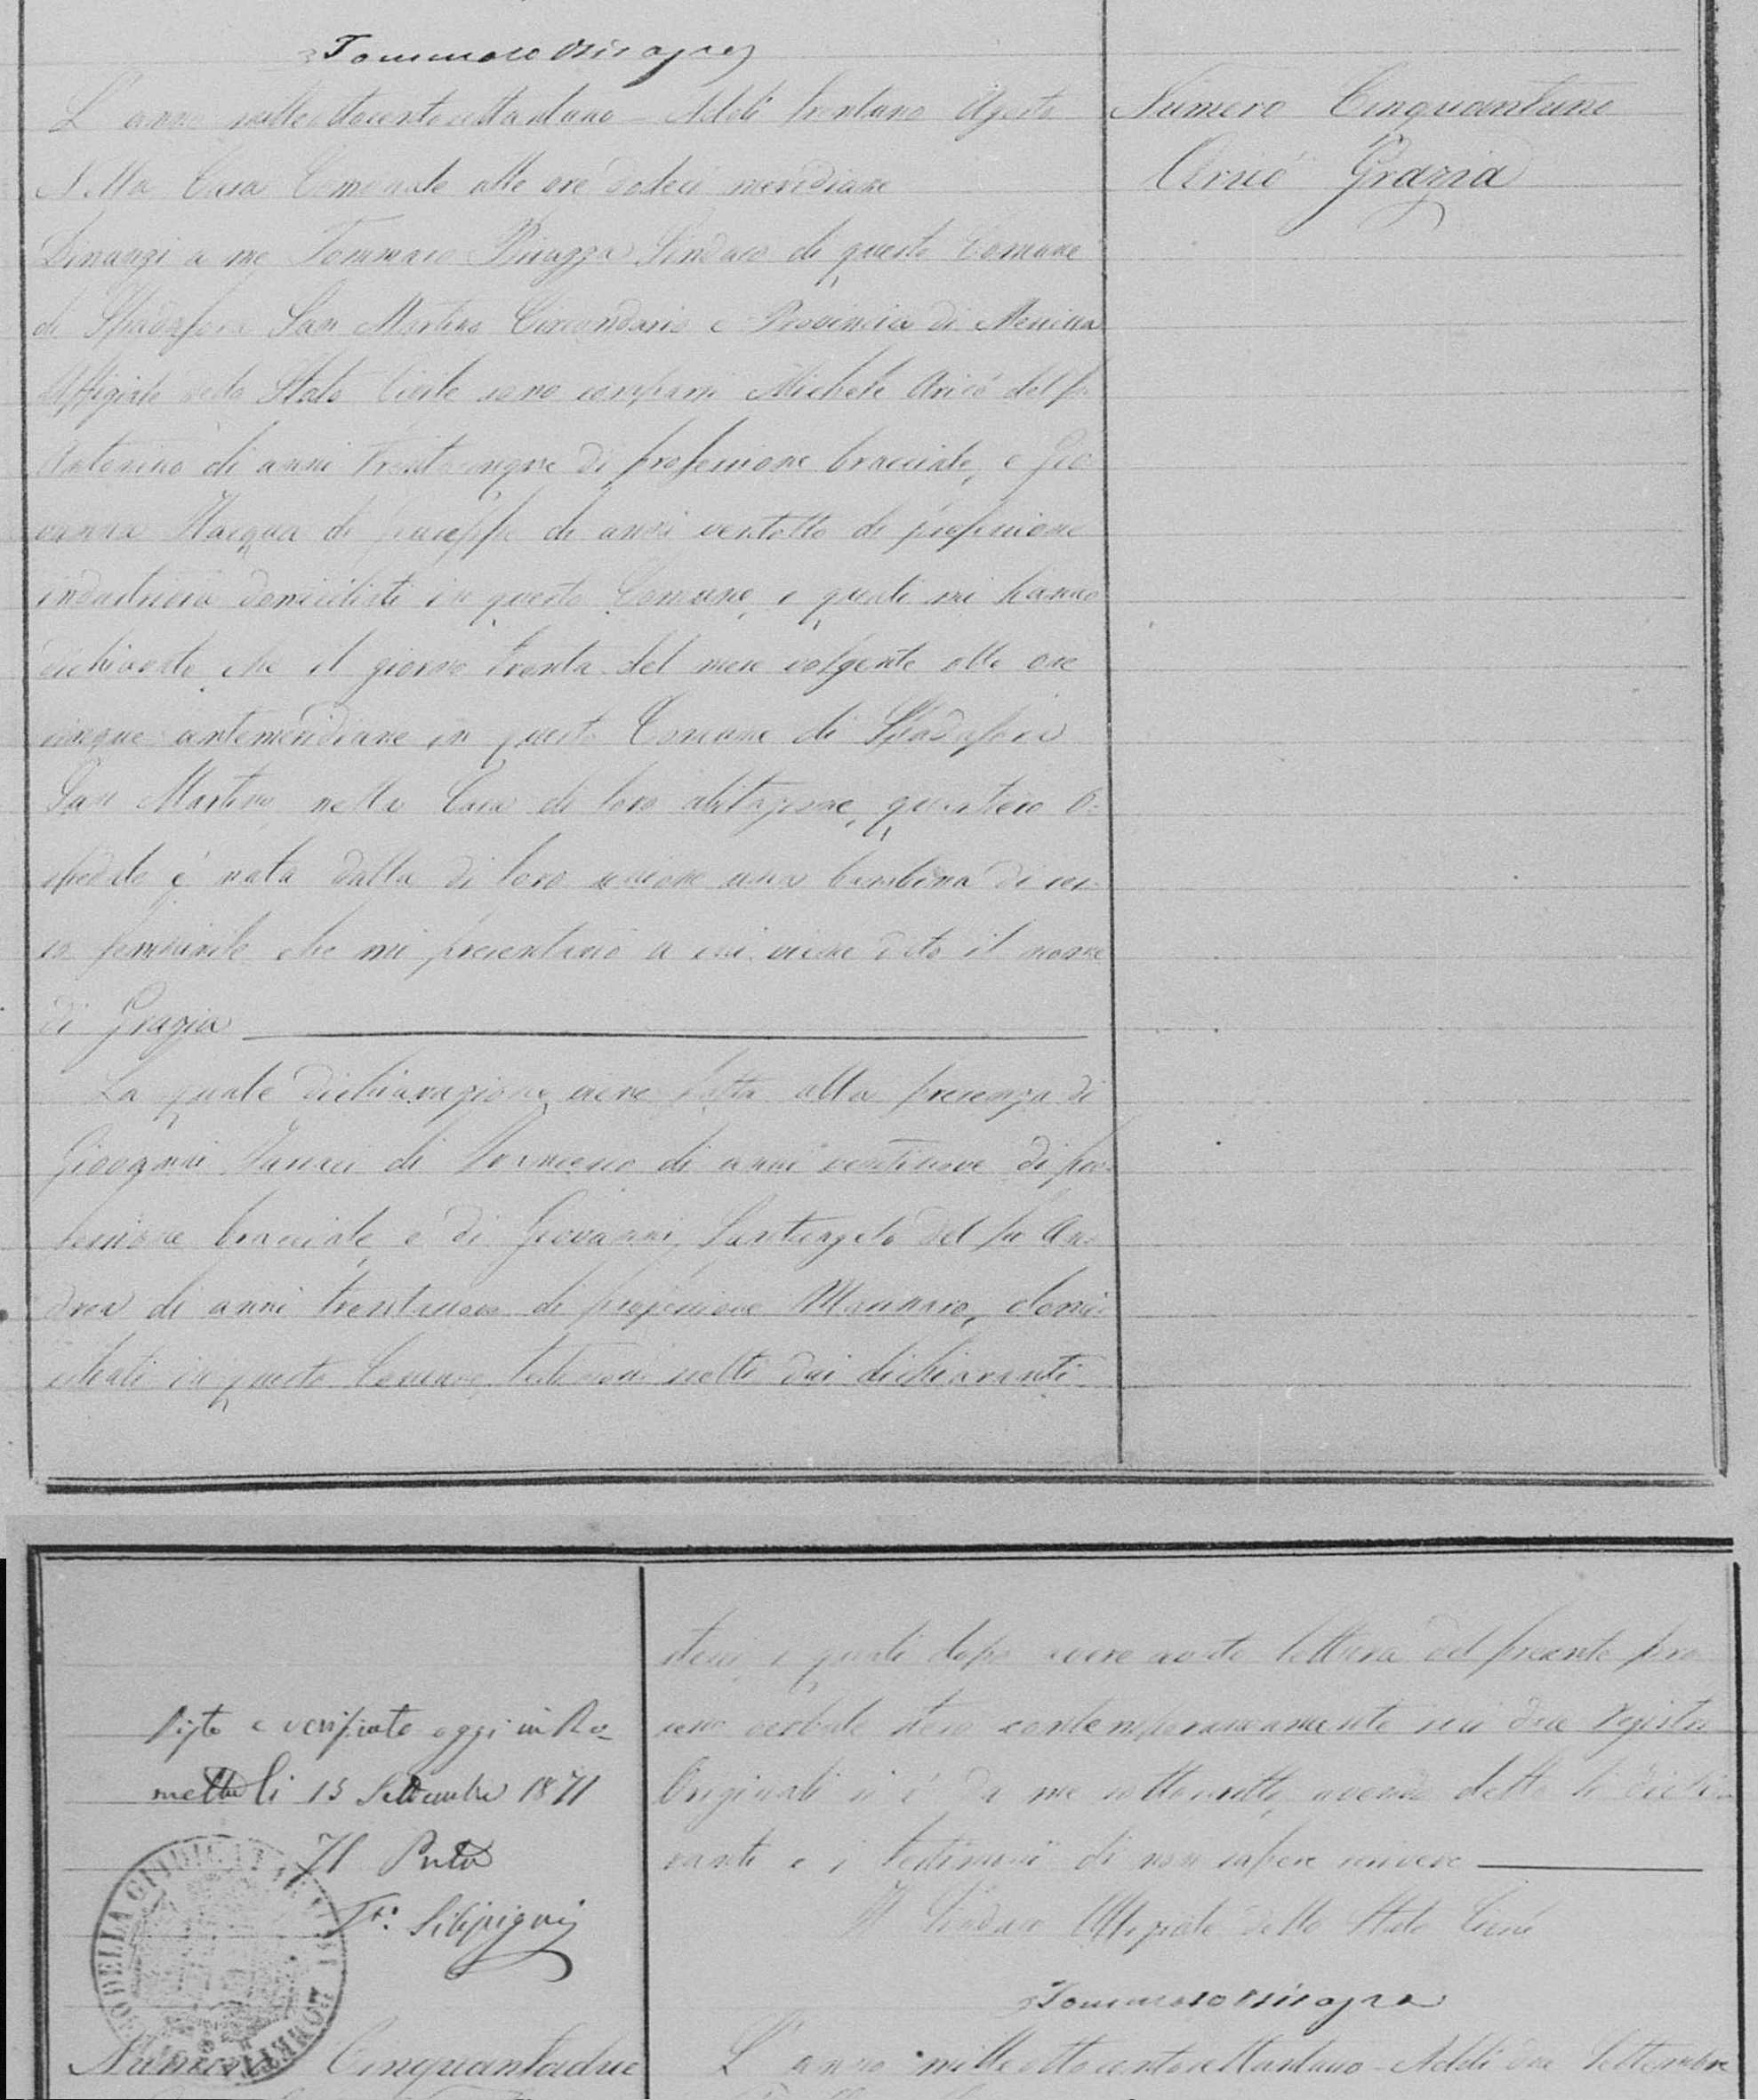 Tommaso Bisazza
L'anno milleottocentosettantuno - Addì trentuno Agosto
Nella Casa Comunale alle ore dodeci meridiane
Dinanzi a me Tommaso Bisazza Sindaco di questo Comune
di Spadafora San Martino Circondario e Provincia di Messina
Uffiziale dello Stato Civile sono comparsi Michele Aricò del fu
Antonino di anni trentacinque di professione bracciale, e Gio-
vanna di Giuseppe di anni ventotto di professione
industriosa domiciliati in questo Comune, i quali mi hanno
dichiarato, che il giorno trenta del mese volgente alle ore
cinque antemeridiane in questo Comune di Spadafora
San Martino nella Casa di loro abitazione, quartiere O-
spedale è nata dalla di loro unione una bambina di ses-
so femminile che mi presentano a cui viene dato il nome
di Grazia
La quale dichiarazione viene fatta alla presenza di
Giovanni di Francesco di anni ventinove di pro-
fessione bracciale, e di Giovanni Santangelo del fu An-
drea di anni di professione domi-
ciliati in questo Comune, testimoni scelti dai dichiaranti
Numero Cinquantuno
Aricò Grazia
stessi, i quali dopo avere avuto lettura del presente pro-
cesso verbale steso contemporaneamente sui due registri
Originali si è da me sottoscritto, avendo detto li dichia-
ranti e i testimoni di non sapere scrivere
Il Sindaco Uffiziale dello Stato Civile
Tommaso Bisazza
Visto e verificato oggi in Ro-
metta li 15 Settembre 1871
Il
Numero Cinquantadue
L'anno milleottocentosettantuno - Addì due Settembre